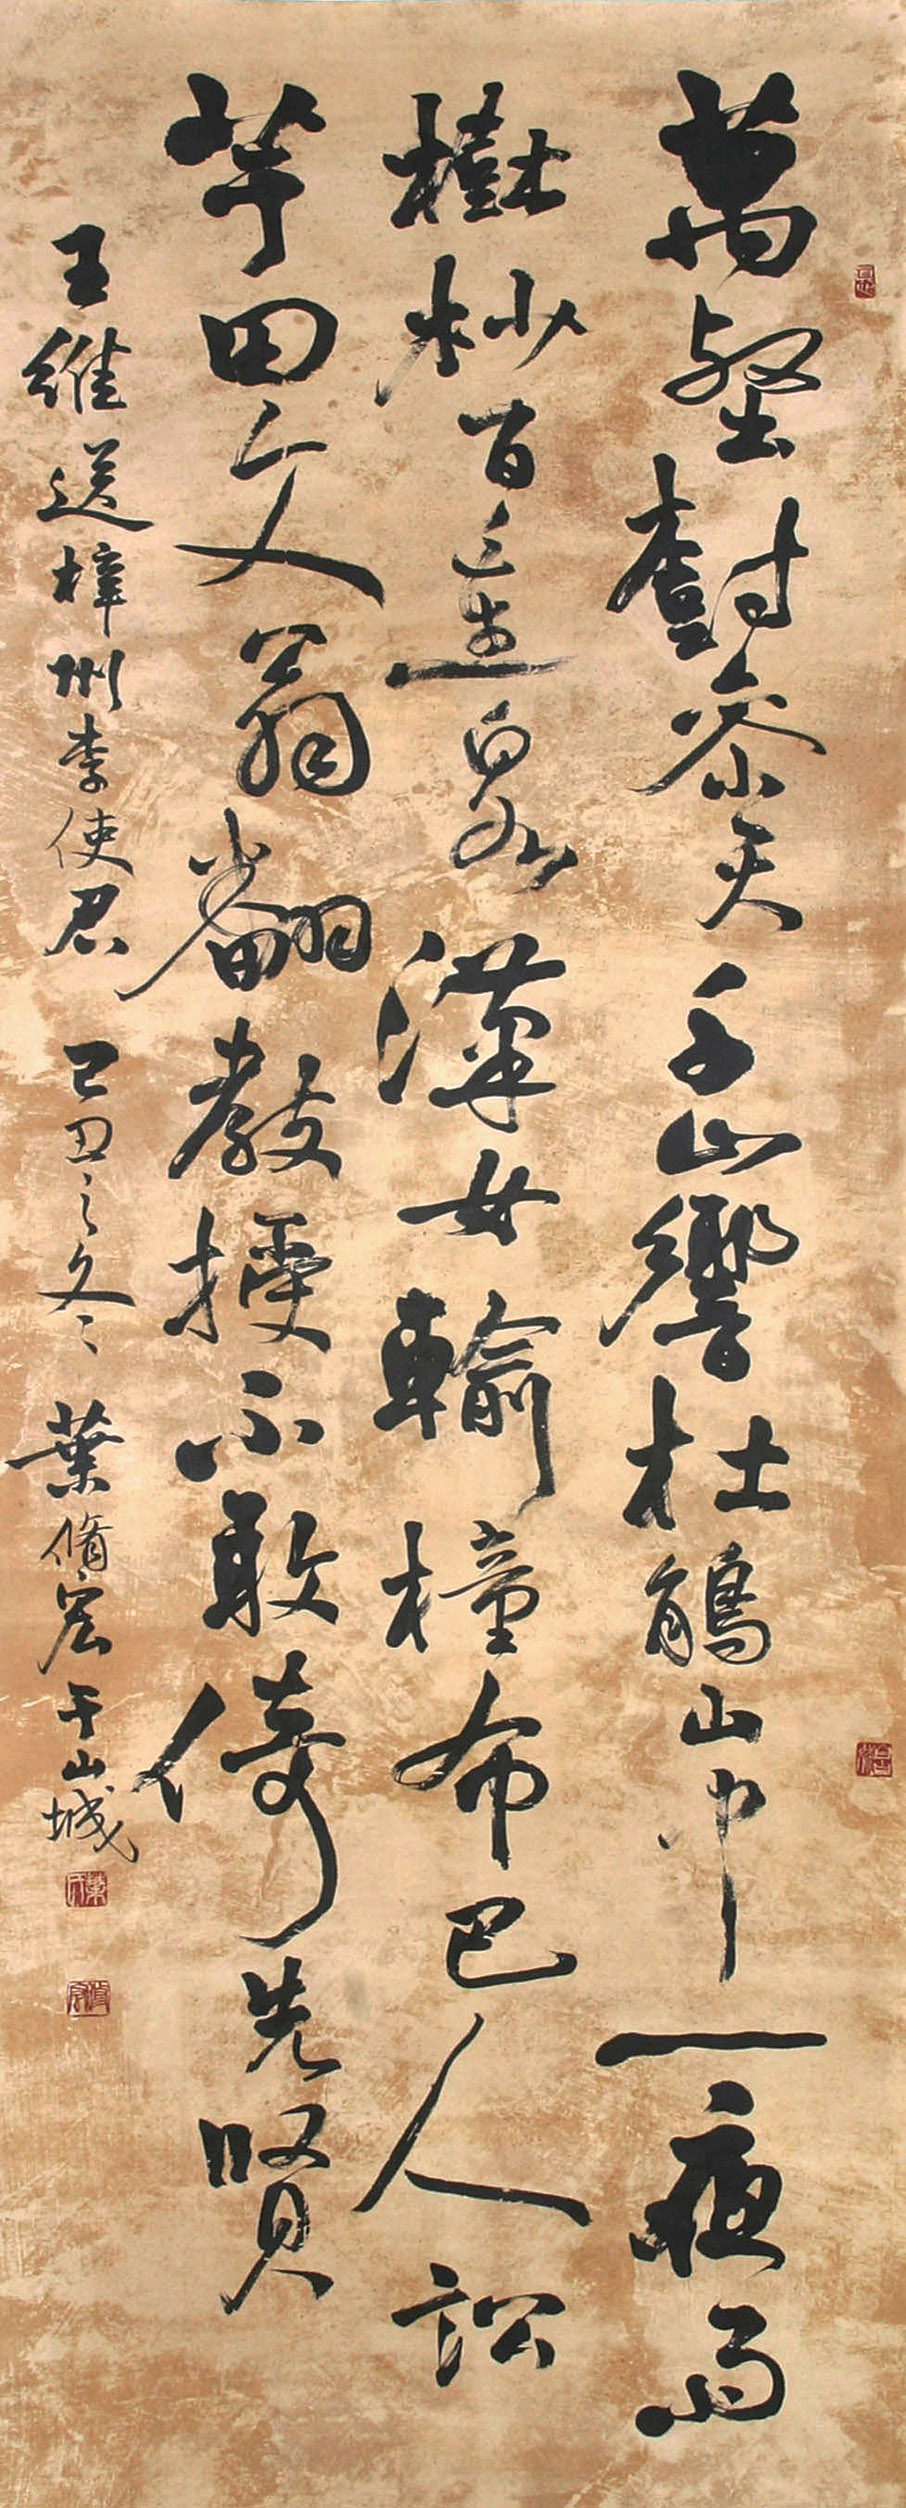 萬壑樹參天千山響杜鵑山中一夜雨
樹杪百重泉漢女輸橦布巴人訟
芋田文翁翻教授不敢倚先賢
王維送梓州李使君 己丑之冬 葉脩宏于山城